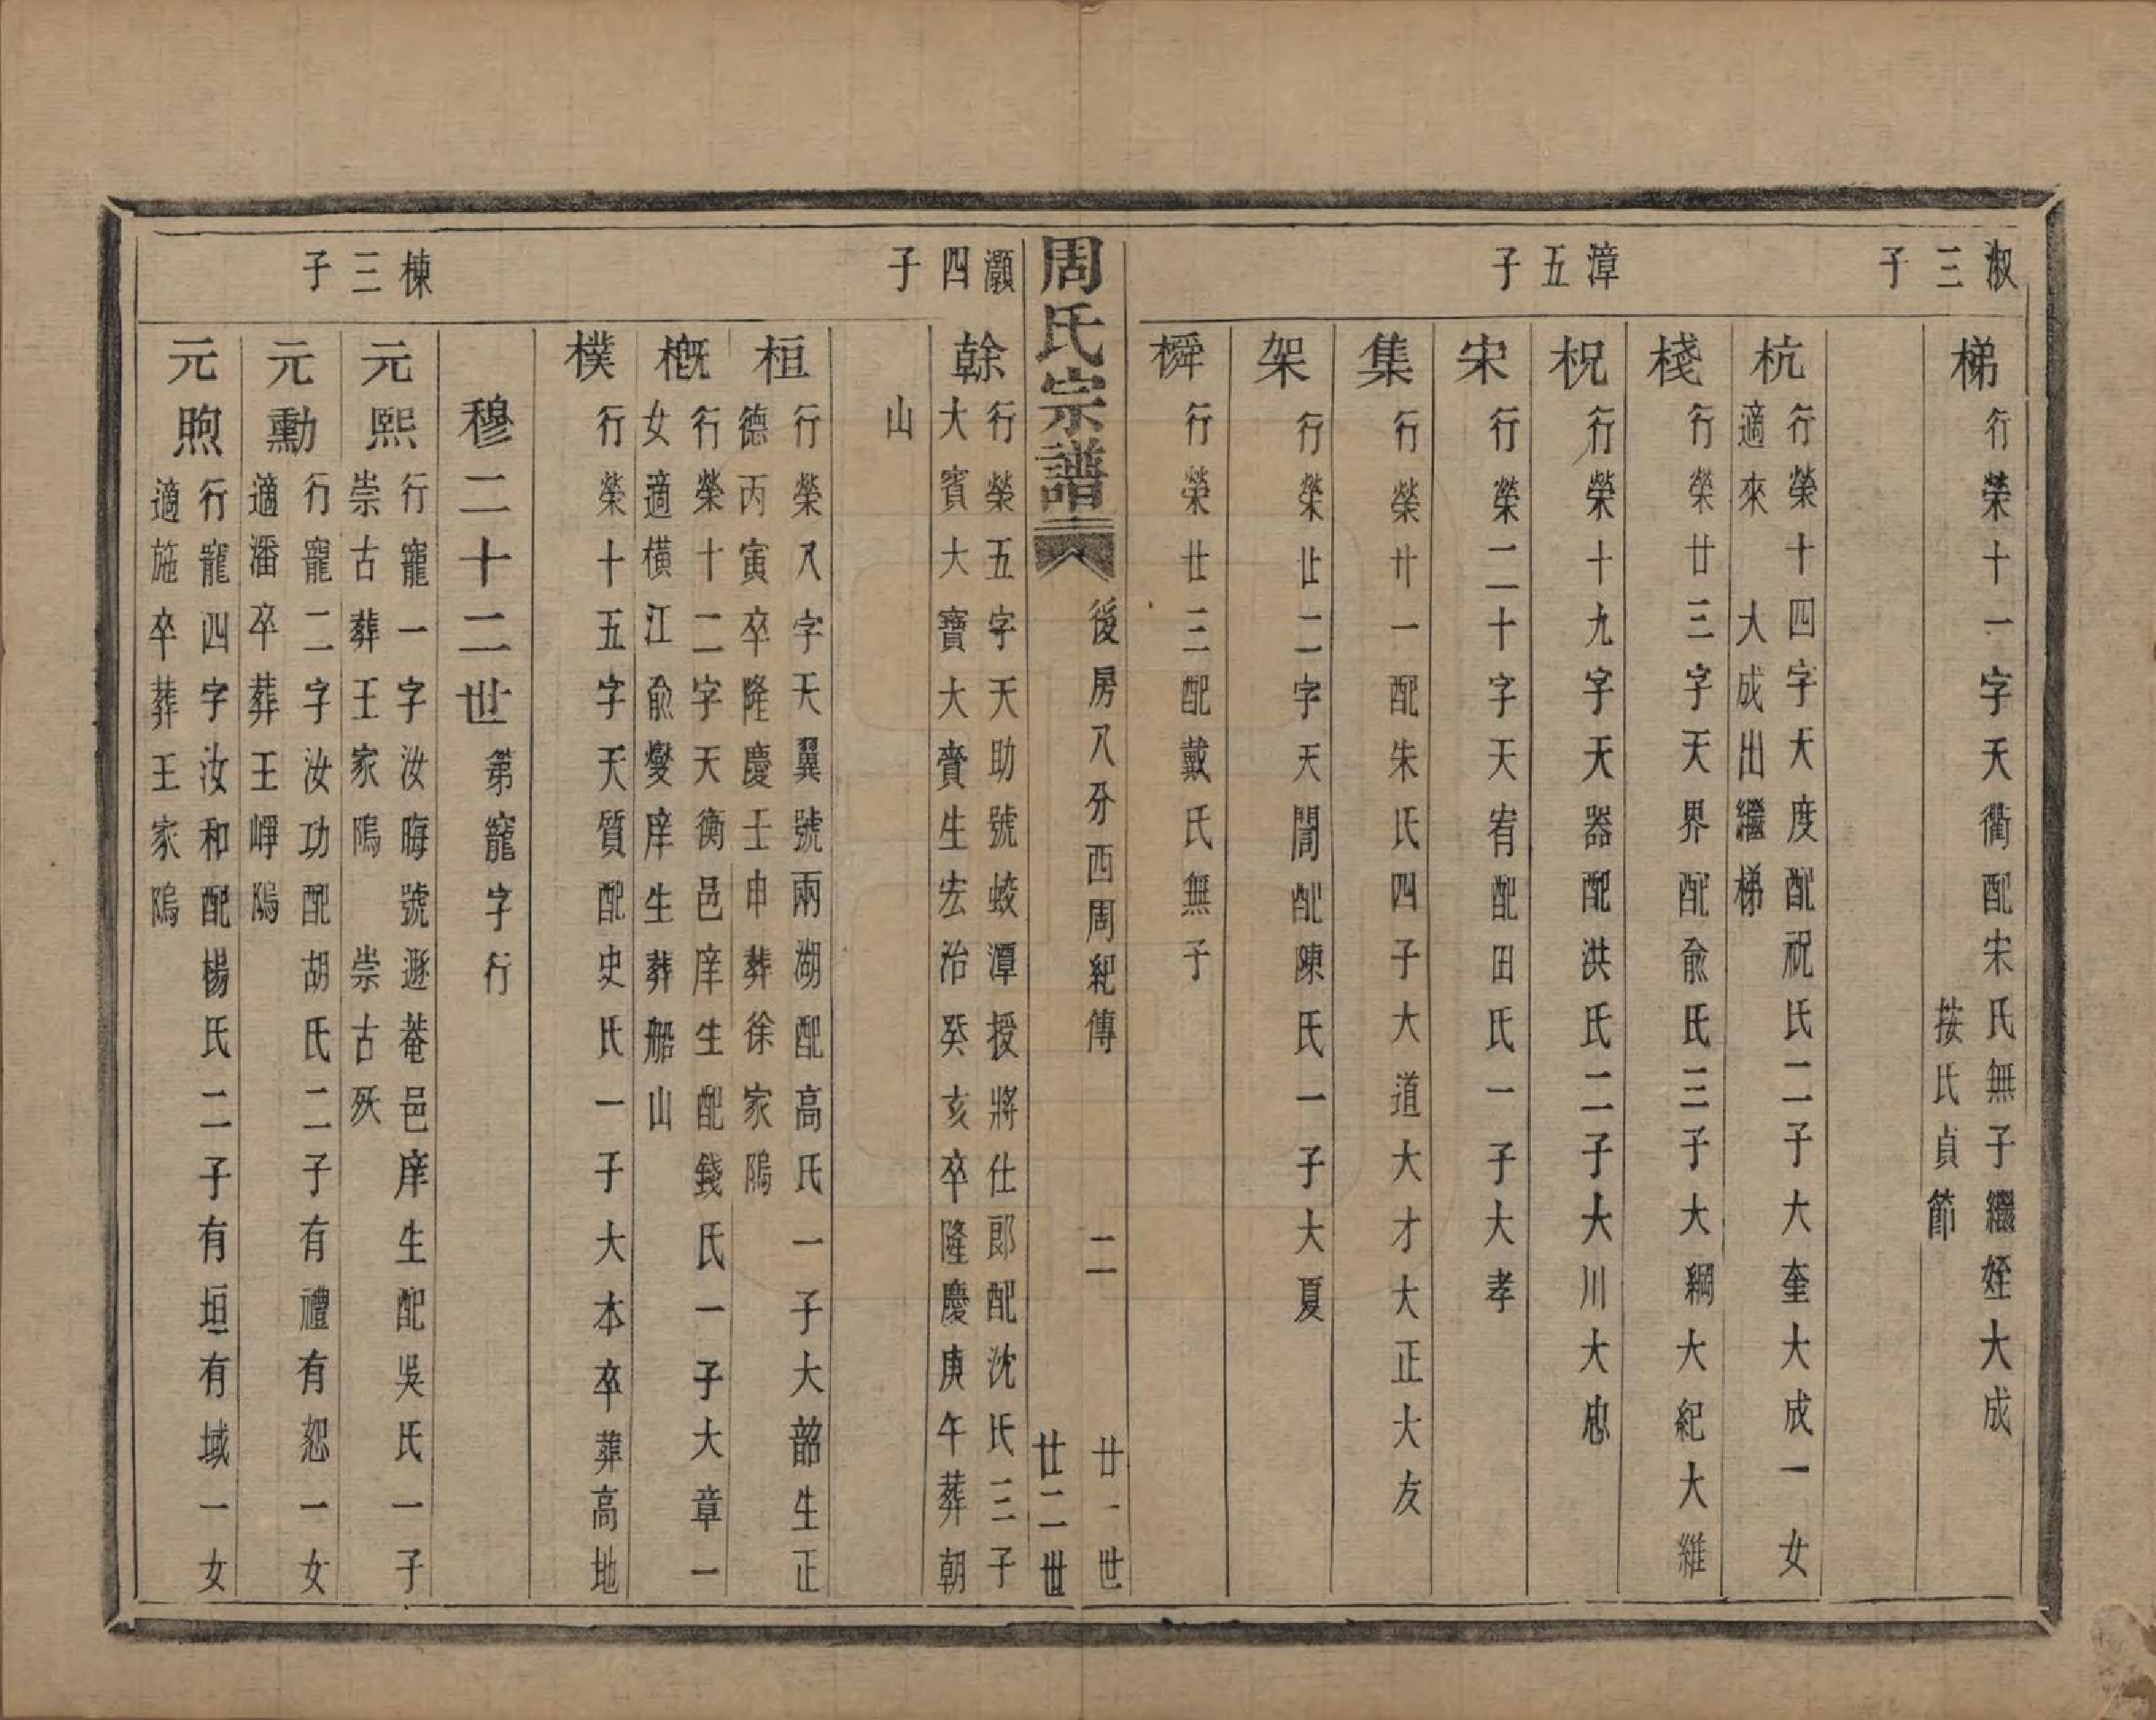 淑三子
梯 行榮十一字天衢配宋氏無子繼姪大成
按氏貞節
杭 行榮十四字大度配祝氏二子大奎大成一女
適來 大成出繼梯
漳五子
棧 行榮廿三字天界配俞氏三子大綱大紀大維
柷 行榮十九字天器配洪氏二子大川大忠
宋 行榮二十字天宥配田氏一子大孝
集 行榮廾一配朱氏四子大道大才大正大友
架 行榮廿二字天閣配陳氏一子大夏
橓 行榮廿三配戴氏無子
周氏宗譜 後房八分西周紀傳 二 廿一世
廿二世
灝四子
榦 行榮五字天助號蛟潭授將仕郎配沈氏三子
大賓大寶大賚生宏治癸亥卒隆慶庚午葬朝
山
桓 行榮八字天翼號兩湖配高氏一子大韶生正
德丙寅卒隆慶壬申葬徐家隝
概 行榮十二字天衡邑庠生配錢氏一子大章一
女適橫江俞燮庠生葬船山
樸 行榮十五字天質配史氏一子大本卒葬高地
穆二十二世 第寵字行
棟三子
元熙 行寵一字汝晦號遯菴邑庠生配吳氏一子
崇古葬王家隝 崇古殀
元勳 行寵二字汝功配胡氏二子有禮有恕一女
適潘卒葬王崢隝
元煦 行寵四字汝和配楊氏二子有垣有域一女
適施卒葬王家隝